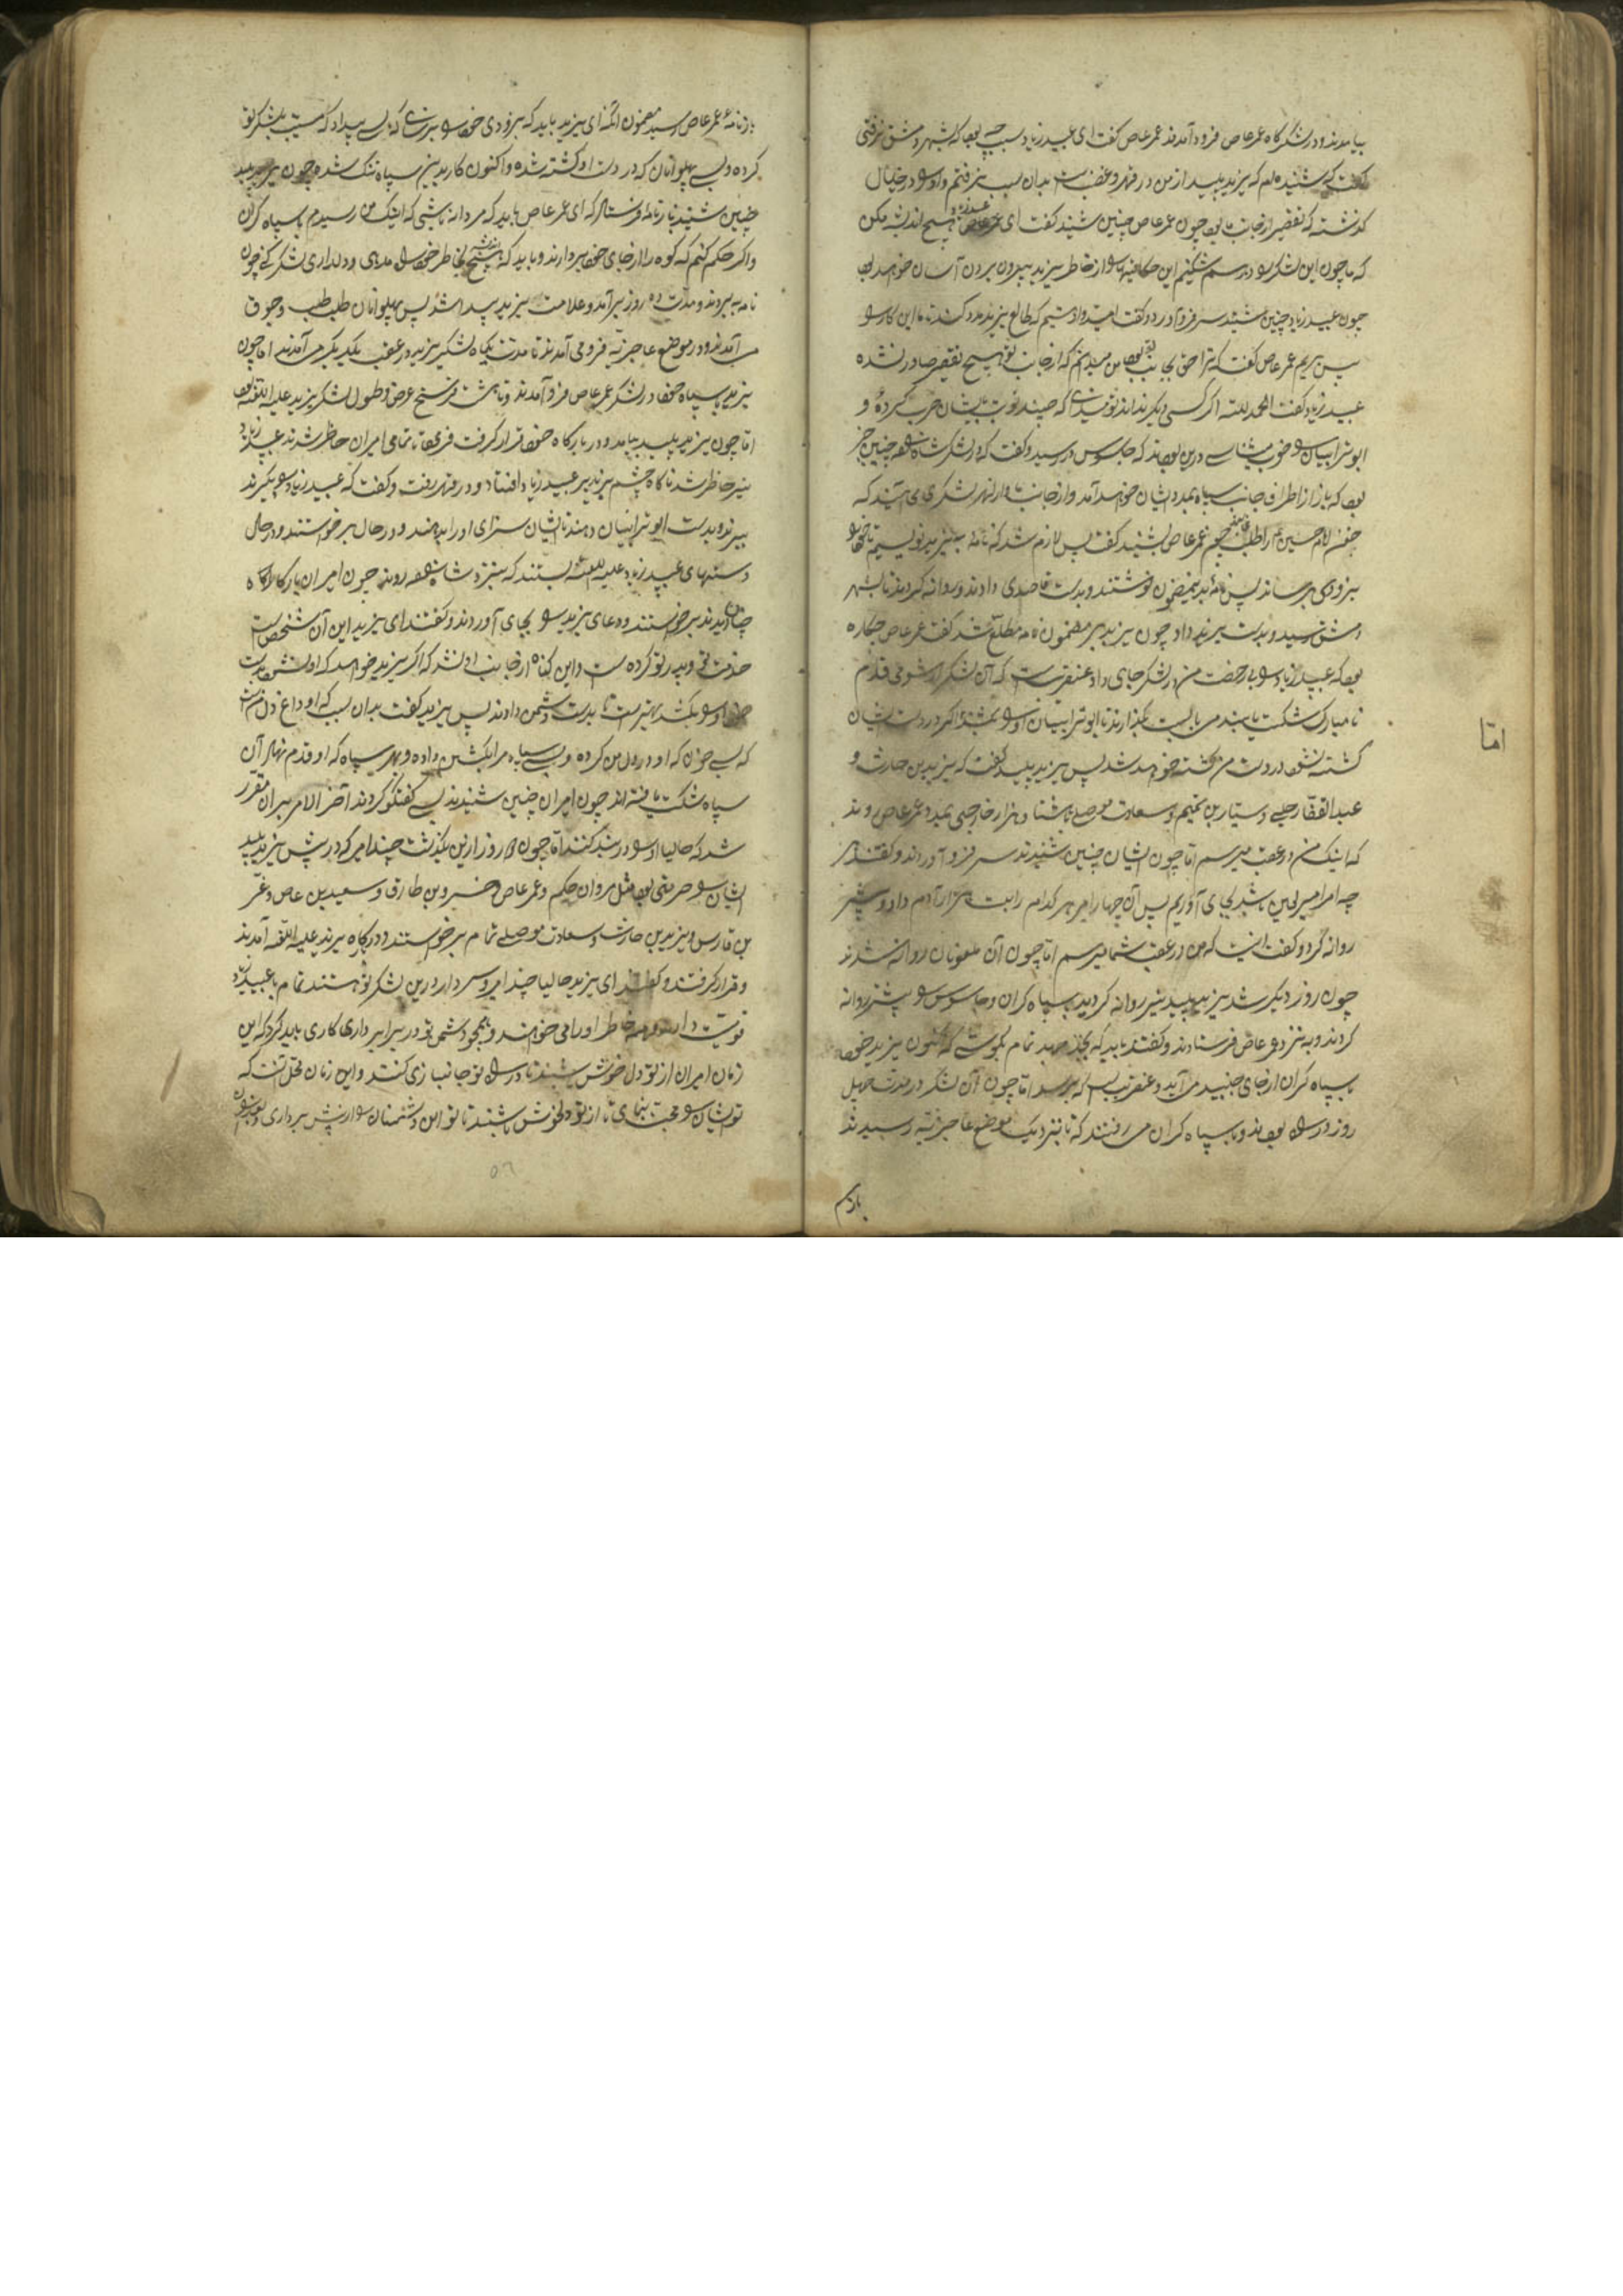 بیامدند و در لشکرگاه عمر عاص فرود آمدند عمر عاص گفت ای عبید زیاد سبب چه بود که بشهر دمشق نرفتی
گفت که شنیده ام که یزید پلید از من در قهر و غضب است بدان سبب نرفتم و او را در خیال
گذشته که تقصیر از جانب ما بود چون عمر عاص چنین شنید گفت ای عبید زیاد هیچ اندیشه مکن
که ما چون این لشکر را در هم شکنیم این حکایتها را از خاطر یزید بیرون بردن آسان خواهد بود
چون عبید زیاد چنین شنید سر فرود آورد و گفت امیدوار هستیم که طالع یزید مدد کند تا ما این کار را
بسر بریم عمر عاص گفت که ترا حق بجانب بود من میدانم که از جانب تو هیچ تقصیر صادر نشده
عبید زیاد گفت الحمد لله اگر کسی دیگر نداند تو میدانی که چند نوبت با ایشان حرب کرده و
ابو ترابیان را خوب میشناسی درین بودند که جاسوس در رسید و گفت که در لشکر شاه چنین خبر
بود که باز از اطراف جانب سپاه بمدد ایشان خواهد آمد و از جانب ماوراءالنهر لشکری می آیند که
خون امام حسین را طلب کنیم عمر عاص بشنید گفت پس لازم شد که نامه به یزید نویسیم تا خود را
بزودی برساند پس نامه بدین مضمون نوشتند و بدست قاصدی دادند و روانه کردند تا بشهر
دمشق رسید و بدست یزید داد چون یزید بر مضمون نامه مطلع شد گفت عمر عاص چکاره
بود که عبید زیاد را بی رخصت من در لشکر جای داد عنقریب است که آن لشکر از شومی قدم
نامبارک شکست یابند می بایست بگذارند تا ابو ترابیان او را بکشند اگر در دست ایشان
کشته نشود در دست من کشته خواهد شد پس یزید پلید گفت که یزید بن حارث و
عبد الغفار حلبی و ستار بن تمیم و سعادت موصلی با هشتاد هزار خارجی بمدد عمر عاص روند
که اینک من در عقب میرسم اما چون ایشان چنین شنیدند سر فرود آوردند و گفتند هر
چه امر امیر بین باشد بجای آوریم پس آن چهار امیر هر کدام را بیست هزار آدم داد و پیشتر
روانه کرد و گفت اینست که من در عقب شما میرسم اما چون آن ملعونان روانه شدند
چون روز دیگر شد یزید پلید نیز روانه گردید با سپاه گران و جاسوس را پیشتر روانه
کردند و به نزد عمر عاص فرستادند و گفتند باید که بجد و جهد تمام بکوشی که اکنون یزید خود
با سپاه گران از جای جنبید می آید و عنقریب است که برسد اما چون آن لشکر در مدت چهل
روز در راه بودند و با سپاه گران می رفتند که تا نزدیک موضع عاجزیه رسیدند
باز نامه
اما
باز نامه عمر عاص رسید مضمون آنکه ای یزید باید که بزودی خود را برسانی که کسی پیدا که شکست بلشکر تو
کرده و بسی پهلوانان که در دست او کشته شده و اکنون کار بدین سپاه تنگ شده چون یزید پلید
چنین شنید باز نامه فرستاد که ای عمر عاص باید که مردانه باشی که اینک من رسیدم با سپاه گران
و اگر حکم کنم که کوه را از جای خود بردارند و باید که هیچ اندیشه بخاطر خود راه ندهی و دلداری لشکر کنی چون
نامه به بردند و مدت ده روز برآمد و علامت یزید پیدا شد پس پهلوانان طلب طلب و جوق جوق
می آمدند و در موضع عاجزیه فرو می آمدند تا مدت یکماه لشکر یزید در عقب یکدیگر می آمدند اما چون
یزید با سپاه خود در لشکر عمر عاص فرود آمدند و تا هشت فرسنگ عرض و طول لشکر یزید علیه اللعنه بود
اما چون یزید پلید بیامد و در بارگاه خود قرار گرفت فرمود تا تمامی امیران حاضر شدند عبید زیاد
نیز حاضر شد ناگاه چشم یزید بر عبید زیاد افتاد و در قهر رفت و گفت که عبید زیاد را بگیرند
ببرند و بدست ابو ترابیان دهند تا ایشان سزای او را بدهند و در حال برخواستند و در حال
دستهای عبید زیاد علیه اللعنه بستند که بنزد شاه روند چون امیران بارگاه آنچنان
دیدند برخواستند و دعای یزید را بجای آوردند و گفتند ای یزید این آن شخص است
خدمت تو و پدر تو کرده است و این گناه از جانب او نشد که اگر یزید خواهد که او کشته شود بدست
خود او را بکشد بهتر است تا بدست دشمن دادند پس یزید گفت بدان سبب که او داغ دل منست
که بسی خون که او در دل من کرده و بسی سپاه مرا بکشتن داده و بهر سپاه که او قدم نهاد آن
سپاه شکست یافته اند چون امیران چنین شنیدند بسی گفتگو کردند آخر الامر بر آن مقرر
شد که حالیا او را در بند کنند اما چون روز ازین بگذشت چند امیر که در پیش یزید پلید
ایشان را حرمتی بود مثل مروان حکم و عمر عاص و خسرو بن طارق و سعید بن عاص و غیر
بن فارس و یزید بن حارث و سعادت موصلی تمام برخواستند و در بارگاه یزید علیه اللعنه آمدند
و قرار گرفتند و گفتند ای یزید حالیا چند امیر و سردار درین لشکر تو هستند تمام با عبید زیاد
قویت دارند و همه خاطر او را می خواهند و همچو دشمن تو در برابر داری کاری باید کرد که این
زمان امیران از تو دل خوش باشند تا در راه تو جانبازی کنند و این زمان محل آنست که
تو ایشان را محبت نمای تا از تو دلخوش باشند تا تو این دشمنان را از پیش برداری و بعد ازان
۵۶